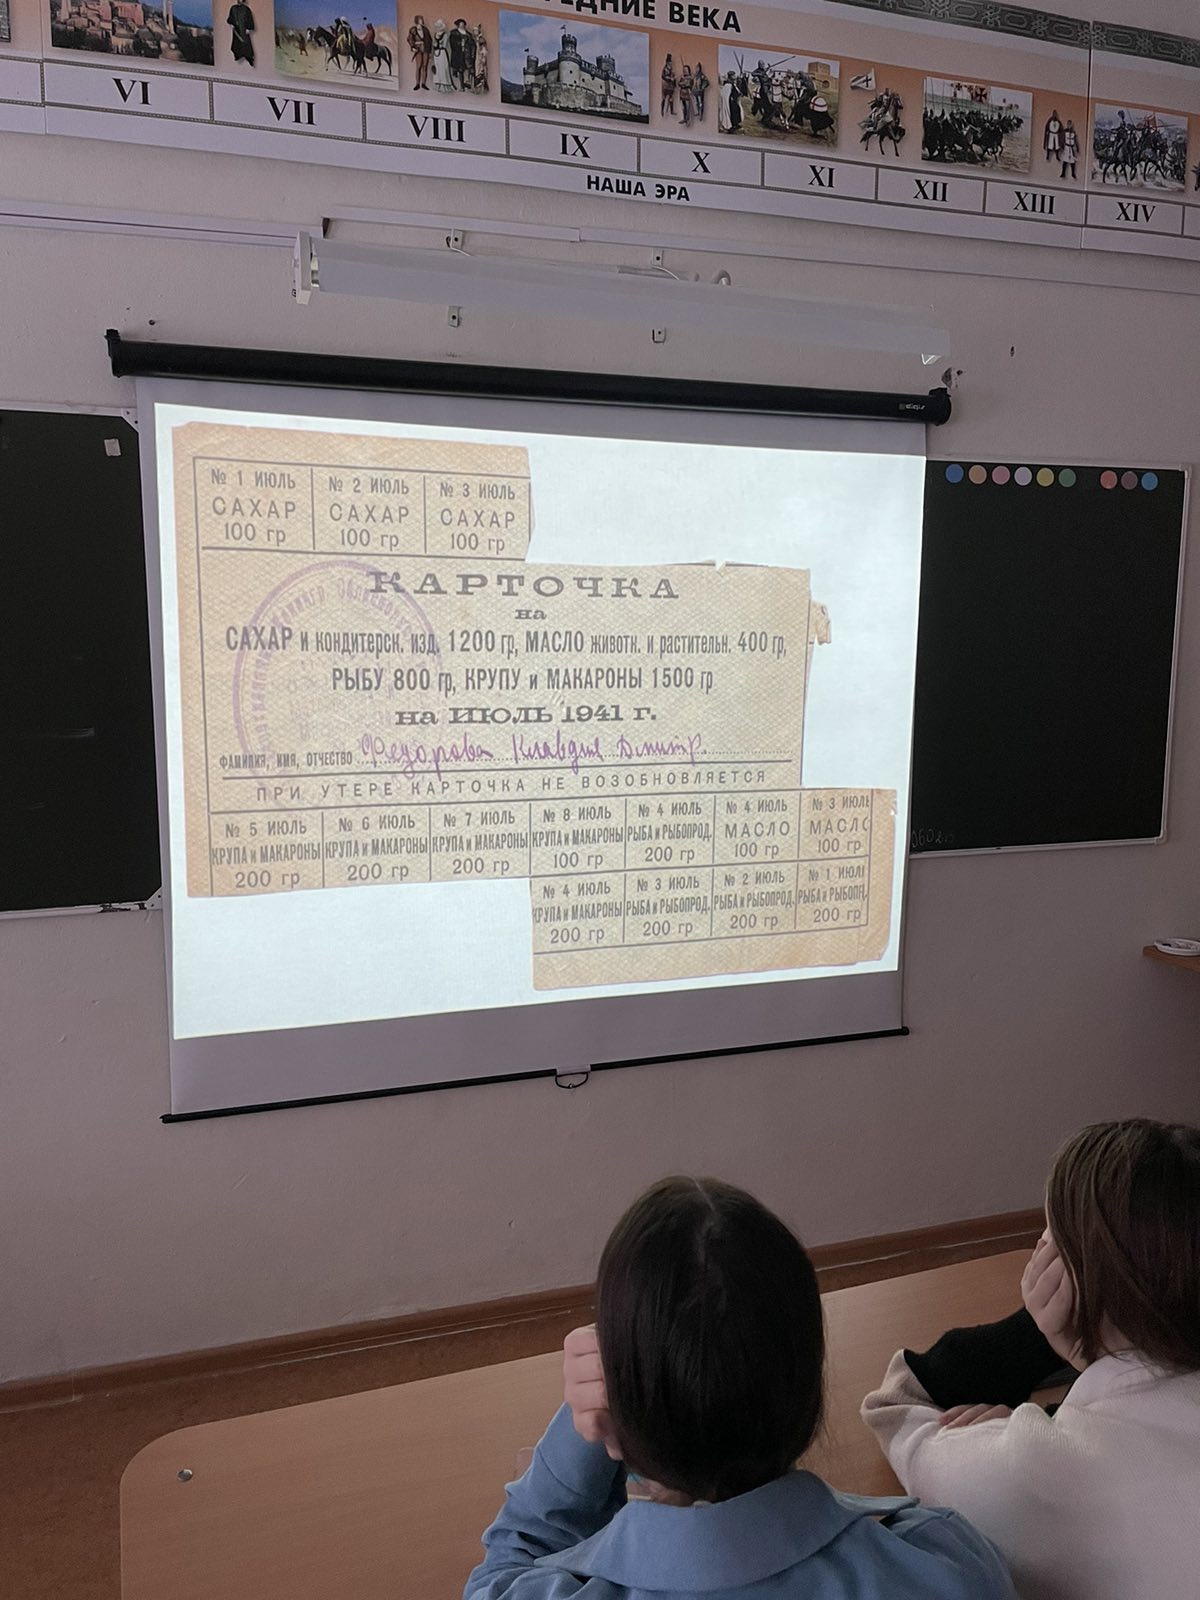 ВЕКА
VI VII VIII IX X XI XII XIII XIV
НАША ЭРА
№ 1 ИЮЛЬ № 2 ИЮЛЬ № 3 ИЮЛЬ
САХАР САХАР САХАР
100 гр 100 гр 100 гр
КАРТОЧКА
на
САХАР и кондитерск. изд. 1200 гр, МАСЛО животн. и растительн. 400 гр,
РЫБУ 800 гр, КРУПУ и МАКАРОНЫ 1500 гр
на ИЮЛЬ 1941 г.
ФАМИЛИЯ, ИМЯ, ОТЧЕСТВО Федорова Клавдия Дмитр.
ПРИ УТЕРЕ КАРТОЧКА НЕ ВОЗОБНОВЛЯЕТСЯ
№ 5 ИЮЛЬ № 6 ИЮЛЬ № 7 ИЮЛЬ № 8 ИЮЛЬ № 4 ИЮЛЬ № 4 ИЮЛЬ № 3 ИЮЛЬ
КРУПА и МАКАРОНЫ КРУПА и МАКАРОНЫ КРУПА и МАКАРОНЫ КРУПА и МАКАРОНЫ РЫБА и РЫБОПРОД. МАСЛО МАСЛО
200 гр 200 гр 200 гр 100 гр 200 гр 100 гр 100 гр
№ 4 ИЮЛЬ № 3 ИЮЛЬ № 2 ИЮЛЬ № 1 ИЮЛ
КРУПА и МАКАРОНЫ РЫБА и РЫБОПРОД. РЫБА и РЫБОПРОД. РЫБА и РЫБОПР
200 гр 200 гр 200 гр 200 гр